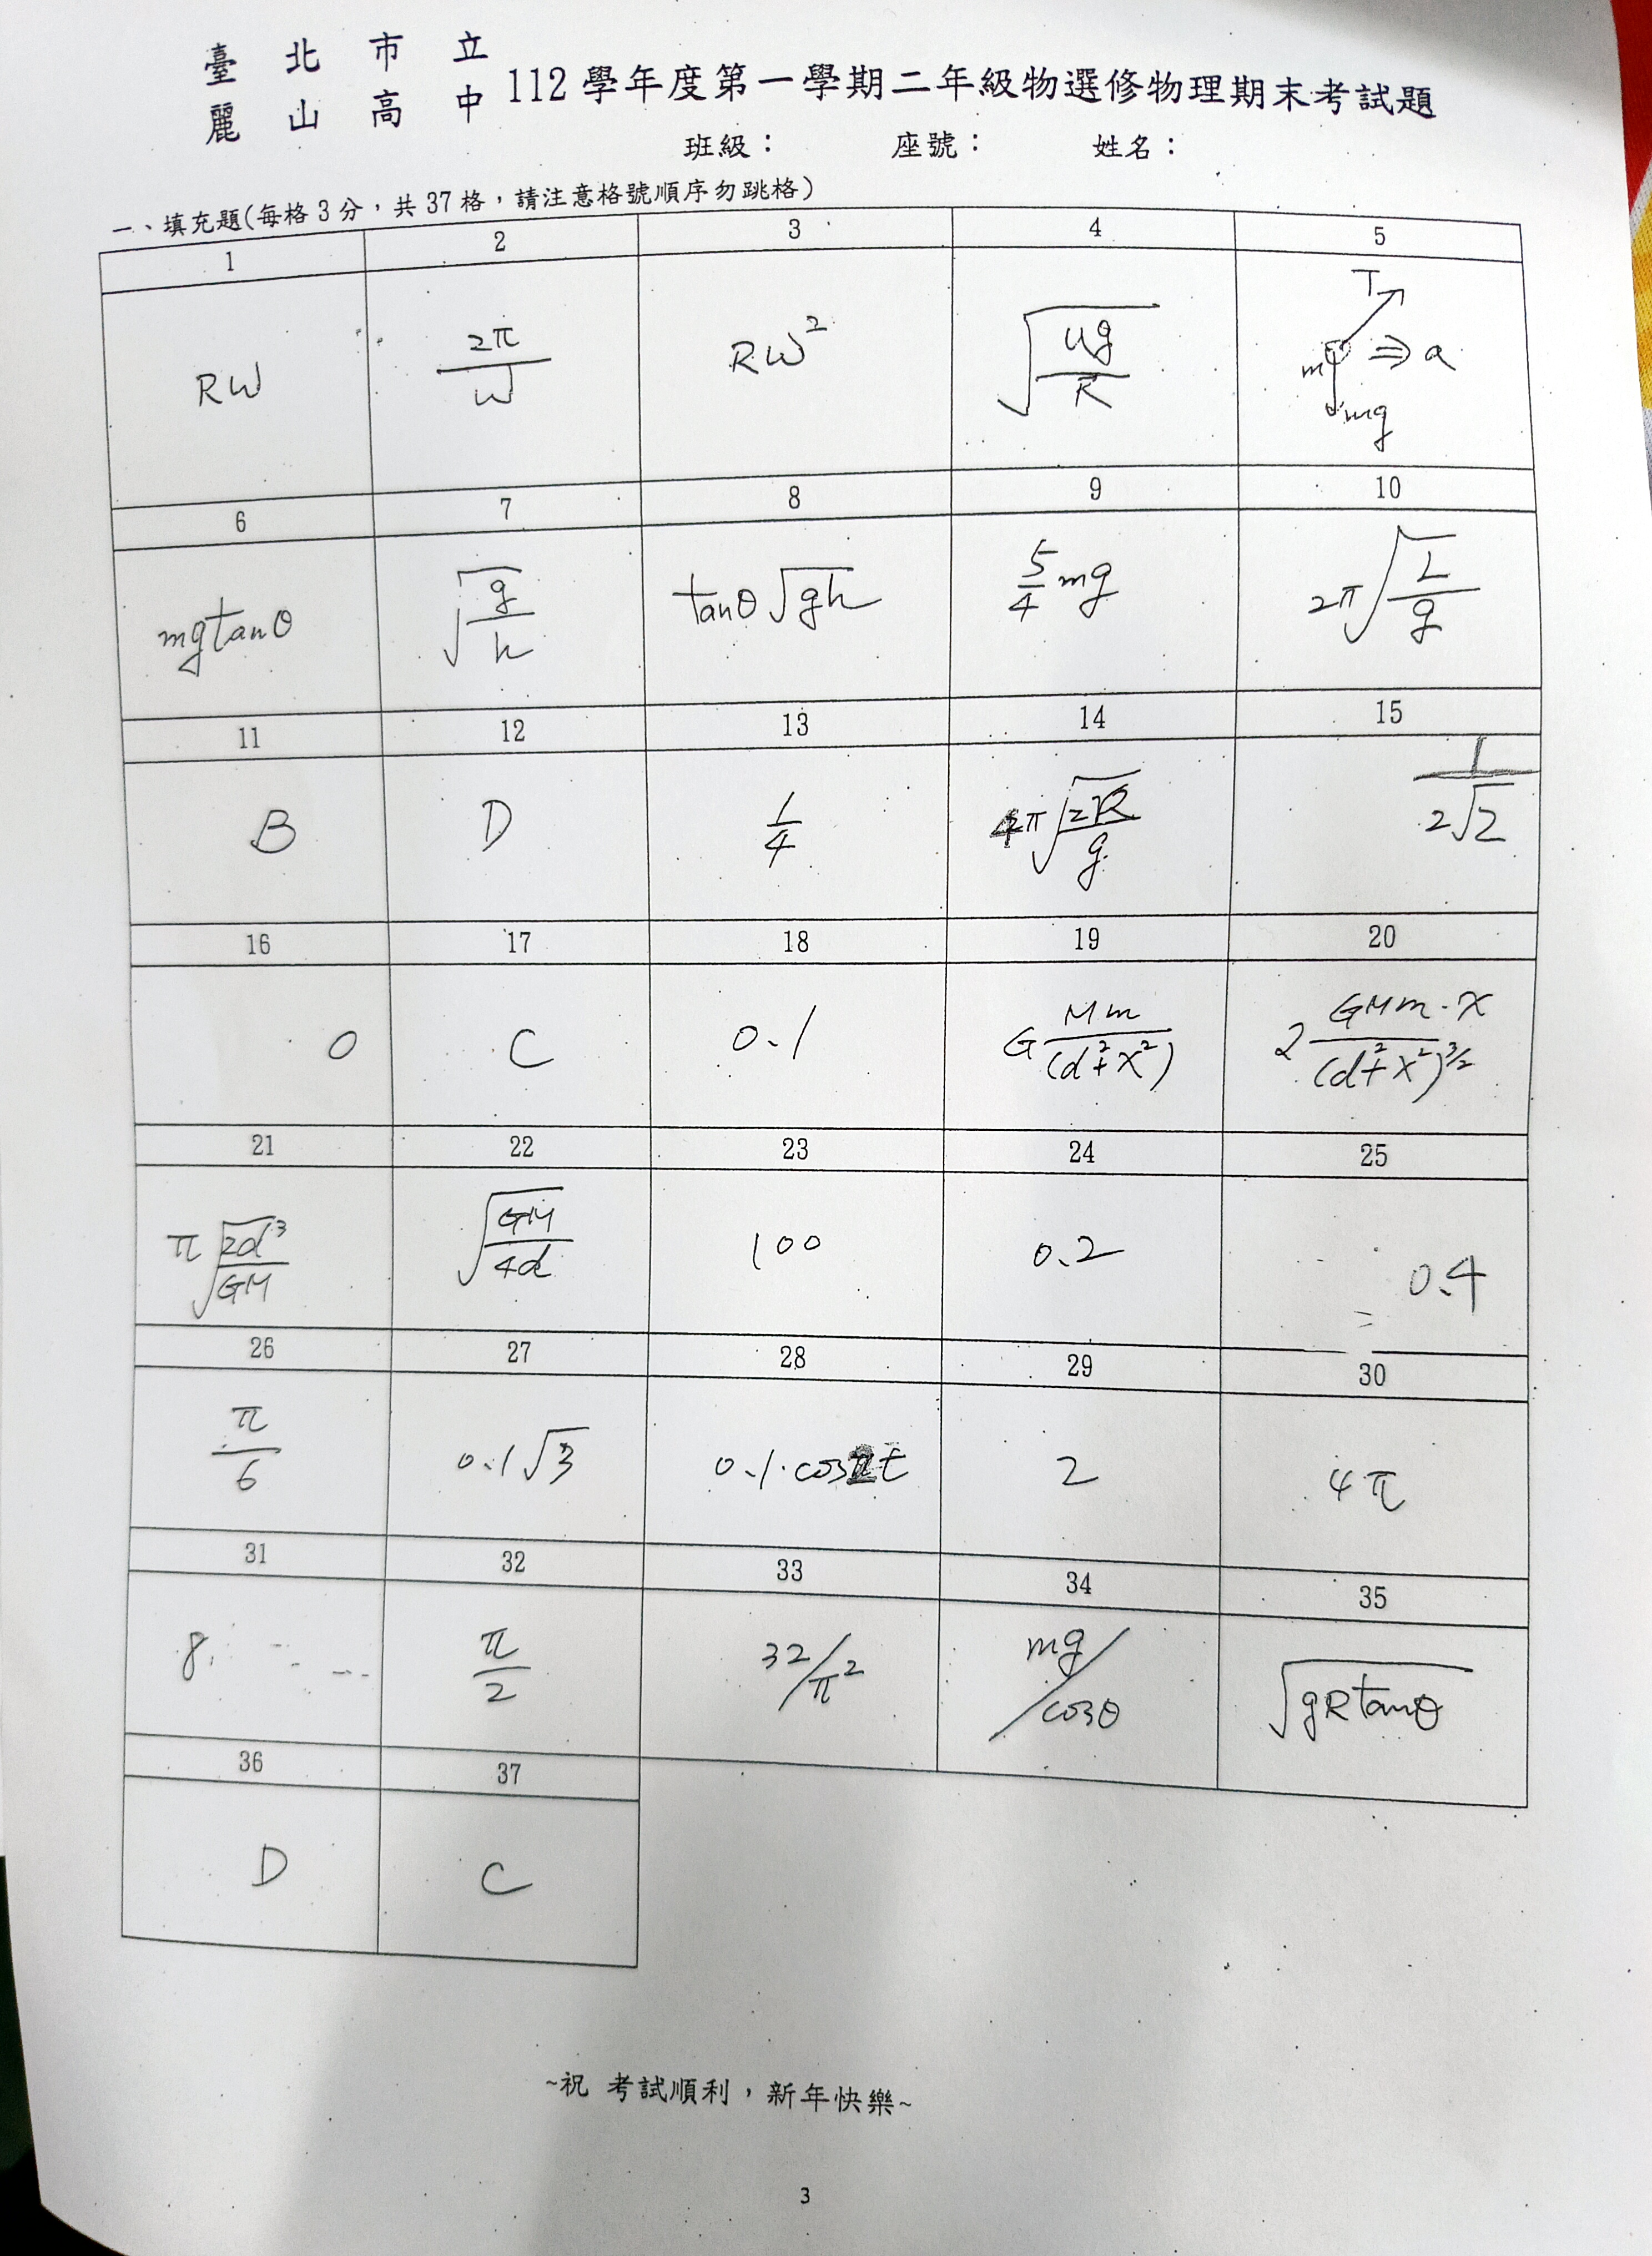 臺北市立
麗山高中 112學年度第一學期二年級物選修物理期末考試題
班級： 座號： 姓名：
一、填充題(每格3分，共37格，請注意格號順序勿跳格)
1 2 3 4 5
Rω 2π/ω Rω² √(μg/R) T m ⇒ a mg
6 7 8 9 10
mgtanθ √(g/h) tanθ√(gh) 5/4 mg 2π√(L/g)
11 12 13 14 15
B D 1/4 4π√(2R/g) 1/(2√2)
16 17 18 19 20
0 C 0.1 G Mm/(d²+x²) 2 GMm·x/(d²+x²)^3/2
21 22 23 24 25
π√(2d³/GM) √(GM/4d) 100 0.2 0.4
26 27 28 29 30
π/6 0.1√3 0.1·cos2t 2 4π
31 32 33 34 35
8 π/2 32/π² mg/cosθ √(gRtanθ)
36 37
D C
~祝 考試順利，新年快樂~
3